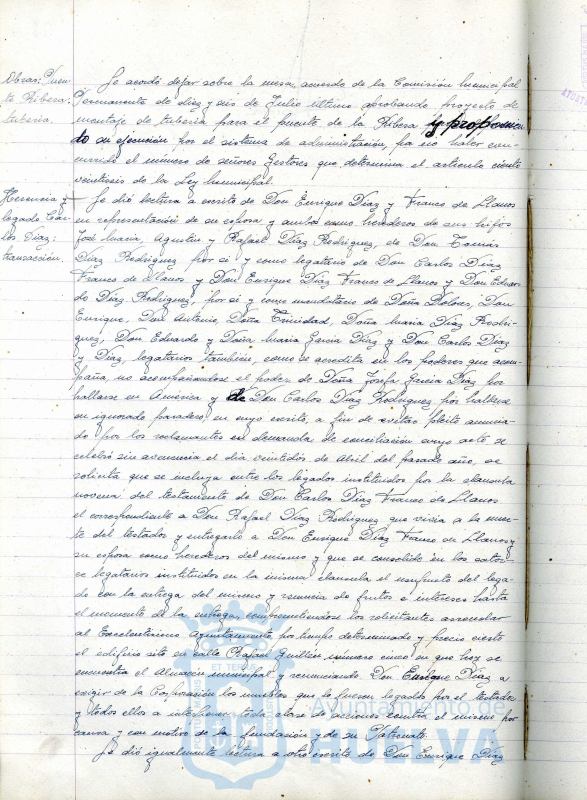 Obras: Puen-
te Ribera:
tuberia.
Se acordó dejar sobre la mesa, acuerdo de la Comisión Municipal
Permanente de diez y seis de Julio último aprobando proyecto de
montaje de tuberia para el puente de la Ribera y proponien
do su ejecución por el sistema de administración, por no haber con-
currido el número de señores Gestores que determina el articulo ciento
veintiseis de la Ley Municipal.
Herencia y
legado Car-
los Diaz:
transacción.
Se dió lectura a escrito de Don Enrique Diaz y Franco de Llanos
en representación de su esposa y ambos como herederos de sus hijos
José Maria, Agustin y Rafael Diaz Rodriguez, de Don Tomás
Diaz Rodriguez por si y como legatario de Don Carlos Diaz
Franco de Llanos y Don Enrique Diaz Franco de Llanos y Don Eduar
do Diaz Rodriguez, por si y como mandatario de Doña Dolores, Don
Enrique, Don Antonio, Doña Trinidad, Doña Maria Diaz Rodri-
guez, Don Eduardo y Doña Maria Garcia Diaz y Don Carlos Diaz
y Diaz, legatarios tambien, como se acredita en los poderes que acom-
paña, no acompañandose el poder de Doña Josefa Garcia Diaz por
hallarse en America y de Don Carlos Diaz Rodriguez por hallarse
en ignorado paradero, en cuyo escrito, a fin de evitar pleito anuncia-
do por los reclamantes en demanda de conciliación cuyo acto se
celebró sin avenencia el dia veintidos de Abril del pasado año, se
solicita que se incluya entre los legados instituidos por la clausula
novena del testamento de Don Carlos Diaz Franco de Llanos
el correspondiente a Don Rafael Diaz Rodriguez que vivia a la muer-
te del testador y entregarlo a Don Enrique Diaz Franco de Llanos y
su esposa como herederos del mismo y que se consolide en los cator-
ce legatarios instituidos en la misma clausula el usufructo del lega-
do con la entrega del mismo y renuncia de frutos e intereses hasta
el momento de la entrega, comprometiendose los solicitantes a
al Excelentisimo Ayuntamiento, por tiempo determinado y precio cierto
el edificio sito en calle Rafael Guillen número cinco en que hoy se
encuentra el Almacén municipal y renunciando Don Enrique Diaz a
exigir de la Corporación los muebles que le fueron legados por el testador
y todos ellos a interponer toda clase de acciones contra el mismo por
causa y con motivo de la fundación y de su Patronato.
Se dió igualmente lectura a otro escrito de Don Enrique Diaz
Ayuntamiento de
HUELVA